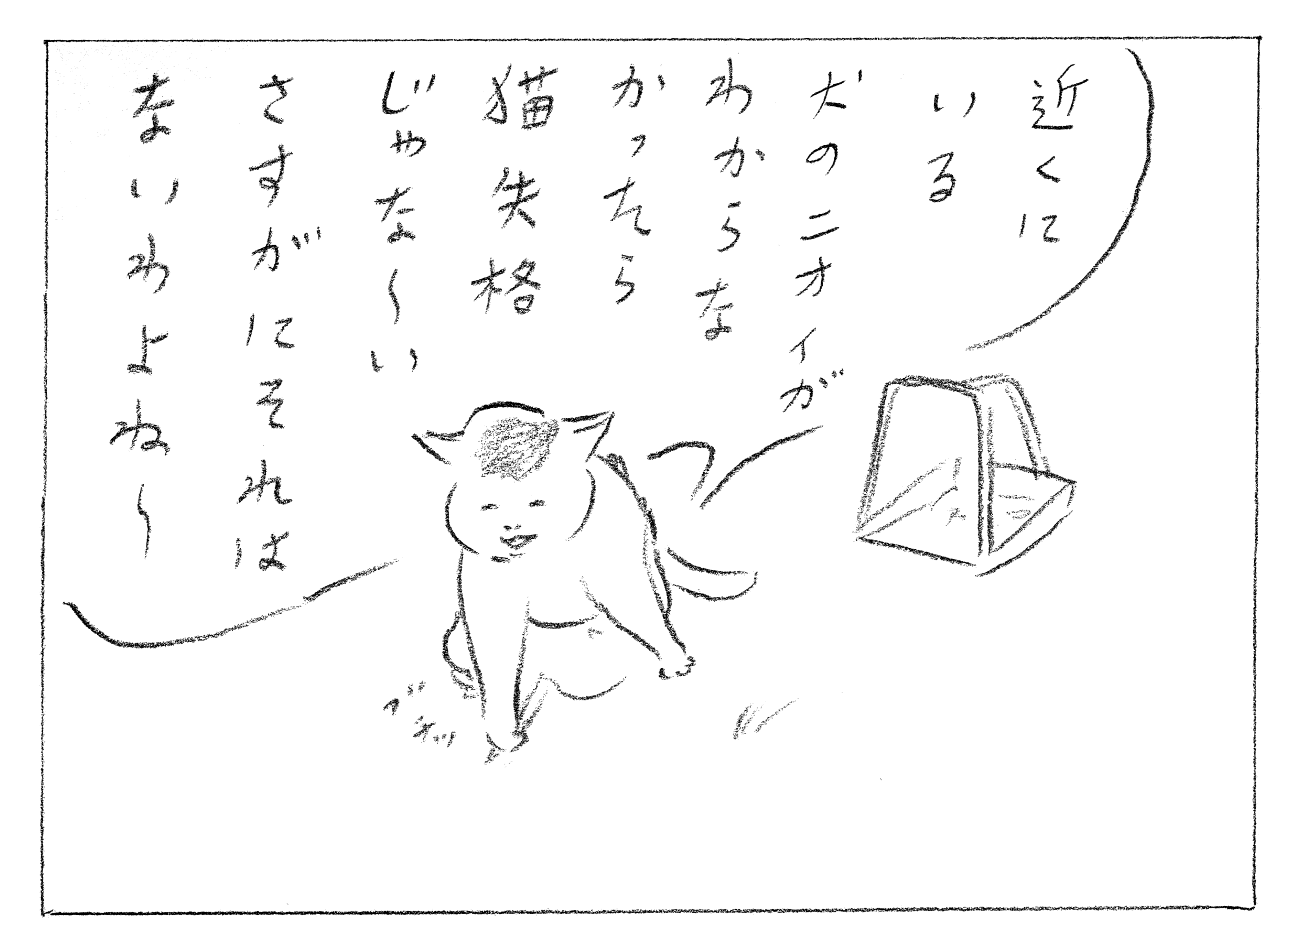 近くに
いる
犬のニオイが
わからな
かったら
猫失格
じゃな〜い
さすがにそれは
ないわよね〜